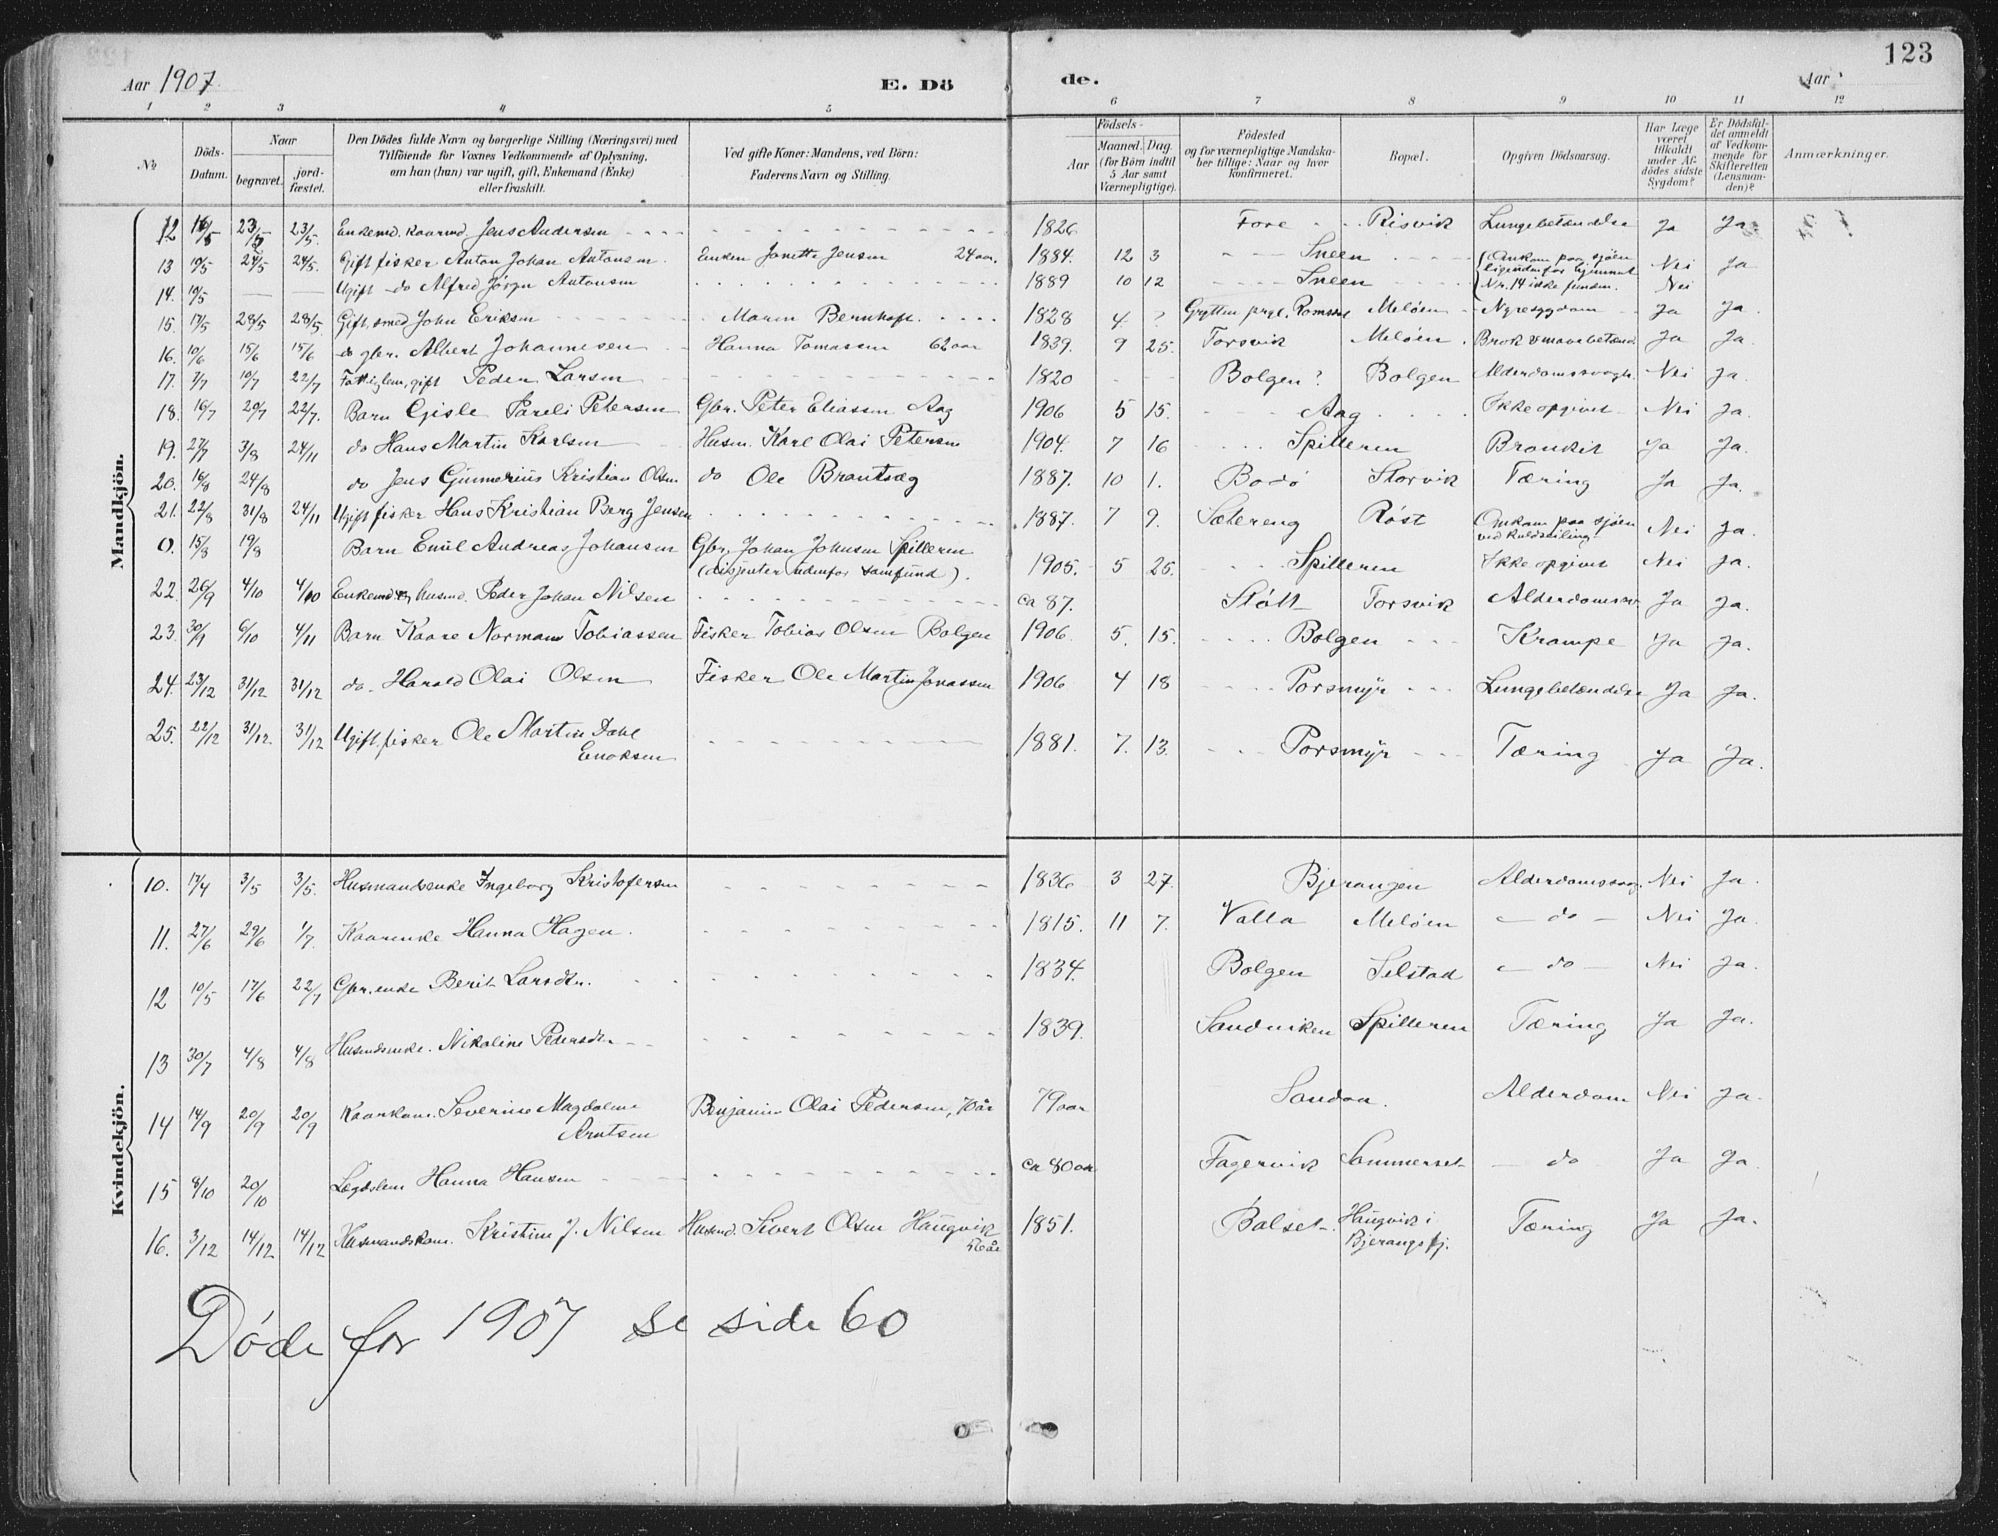 123
Aar 1907. E. Dö de. Aar
1 2 3 4 5 6 7 8 9 10 11 12
No
Döds-Datum.
Naar
begravet.
jord-fæstet.
Den Dödes fulde Navn og borgerlige Stilling (Næringsvei) med
Tilföiende for Voxnes Vedkommende af Oplysning,
om han (hun) var ugift, gift, Enkemand (Enke)
eller fraskilt.
Ved gifte Koner: Mandens, ved Börn:
Faderens Navn og Stilling.
Födsels-
Aar
Maaned. Dag.
(for Börn indtil
5 Aar samt
Værnepligtige).
Födested
og for værnepligtige Mandska-
ber tillige: Naar og hvor
konfirmeret.
Bopæl.
Opgiven Dödsaarsag.
Har Læge
været
tilkaldt
under Af-
dödes sidste
Sygdom?
Er Dödsfal-
det anmeldt
af Vedkom-
mende for
Skifteretten
(Lensman-
den)?
Anmærkninger.
Mandkjön.
12 16/5 23/5 23/5. Enkemd. kaarmd. Jens Andersen 1826 Fore Risvik Lungebetændelse Ja Ja
13 19/5 24/5 24/5. Gift fisker Anton Johan Antonsen Enken Janette Jensen 24 aar. 1884. 12 3 Sneen Omkom paa sjøen Nei Ja
ligendenfor hjemmet
14. 19/5 — — Ugift do Alfred Jørgn Antonsen 1889 10 12 Sneen Nr. 14 ikke funden. Nei
15. 17/5 28/5 28/5 Gift, smed John Eriksen Maren Bernhoft. 1828 4 ? Grytten prgl. Romsdal Meløen Nyresygdom Ja Ja.
16. 10/6 15/6 15/6 do gbr. Albert Johannesen Hanna Tomassen 62 aar 1839. 9 25. Torsvik Meløen. Brok & mavebetænd. Ja Ja.
17. 7/7 10/7 22/7 Fattiglem, gift Peder Larsen 1820 Bolgen? Bolgen Alderdomssvagh. Nei Ja.
18. 16/7 20/7 22/7. Barn Gisle Pareli Petersen Gbr. Peter Eliassen Aag 1906 5 15. Aag Ikke opgivet Nei Ja.
19. 27/7 3/8 24/11 do Hans Martin Karlsen Husm. Karl Olai Petersen 1904. 7 16 Spilderen Bronkit Ja Ja.
20. 16/8 24/8 do Jens Gunnerius Kristian Olsen do Ole Brantsæg 1887. 10 1. Bodø Storvik Tæring Ja Ja.
21. 22/8 31/8 24/11 Ugift fisker Hans Kristian Berg Jensen 1887. 7 9. Sætereng Røst Omkom paa sjøen Nei Ja.
ved kuldseiling
0. 15/8 19/8 Barn Emil Andreas Johansen Gbr. Johan Johnsen Spilderen 1905. 5 25. Spilderen Ikke opgivet Nei Ja.
(disjenter udenfor samfund).
22. 26/9 4/10 4/10 Enkemd og husmd. Peder Johan Nilsen ca 87. Støtt Torsvik Alderdomssv. Ja Ja.
23. 30/9 6/10 4/11 Barn Kaare Norman Tobiassen Fisker Tobias Olsen Bolgen 1906. 5. 15. Bolgen Krampe Ja Ja.
24. 23/12 31/12 31/12 do. Harald Olai Olsen Fisker Ole Martin Jonassen 1906 4 18 Porsmyr Lungebetændelse Ja Ja.
25. 22/12 31/12. 31/12 Ugift, fisker Ole Martin Dahl 1881. 7. 13. Porsmyr Tæring Ja Ja.
Enoksen
Kvindekjön.
10. 17/4 3/5 3/5. Husmandsenke Ingeborg Kristofersen 1836 3 27. Bjerangen Alderdomssvag. Nei Ja.
11. 27/6 29/6 1/7. Kaarenke Hanna Hagen. 1815. 11 7. Valla Meløen — do — Nei Ja.
12 10/5 17/6 22/7 Gbr. enke Berit Larsdtr. 1834. Bolgen Selstad — do — Nei Ja.
13 30/7 4/8 4/8 Husmdsenke. Nikoline Pedersdtr 1839. Sandviken Spilderen Tæring Ja Ja.
14 14/9 20/9 20/9 Kaarkone. Severine Magdalene Benjamin Olai Pedersen, 70 år 79 aar Sandaa. Alderdom Nei Ja.
Arntsen
15 8/10 20/10 Lægdslem Hanna Hansen ca 80 aar Fagervik Sommerset — do Ja Ja.
16. 3/12 14/12 14/12 Husmandskone. Kristine J. Nilsen Husmd. Sivert Olsen Haugvik 1851. Balset. Haugvik i Tæring Ja Ja.
56 år Bjerangsfj.
Døde for 1907 se side 60